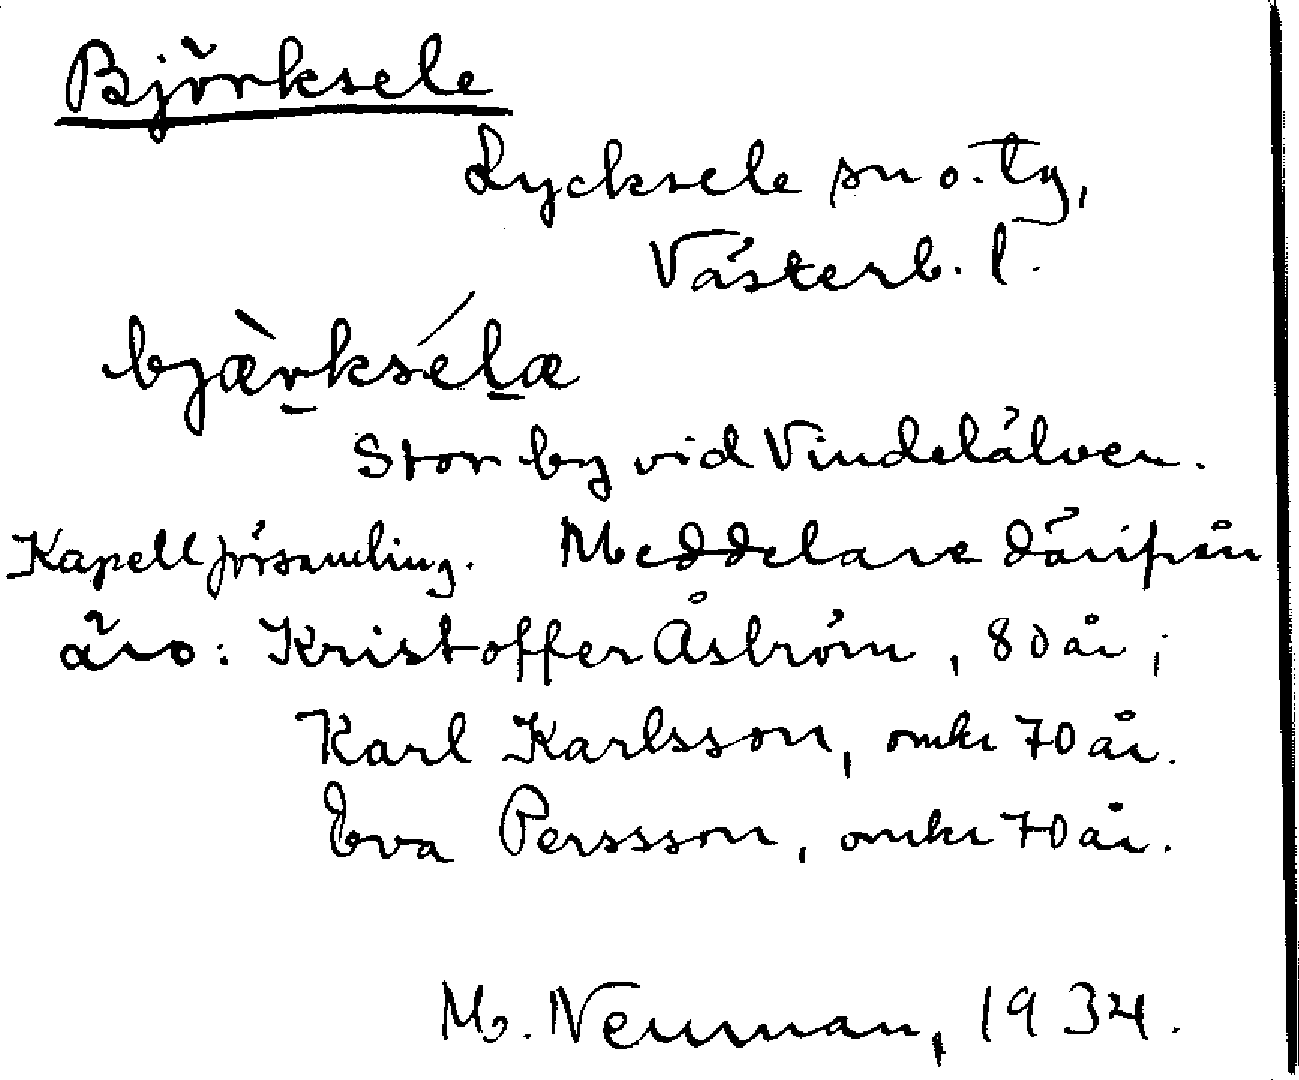 Björksele
Lycksele sn o. tg,
Västerb. l.
bjæ̀rkséḻæ
Stor by vid Vindelälven.
Kapellförsamling. Meddelare därifrån
äro: Kristoffer Åström, 80 år;
Karl Karlsson, omkr 70 år.
Eva Persson, omkr 70 år.
M. Neuman, 1934.